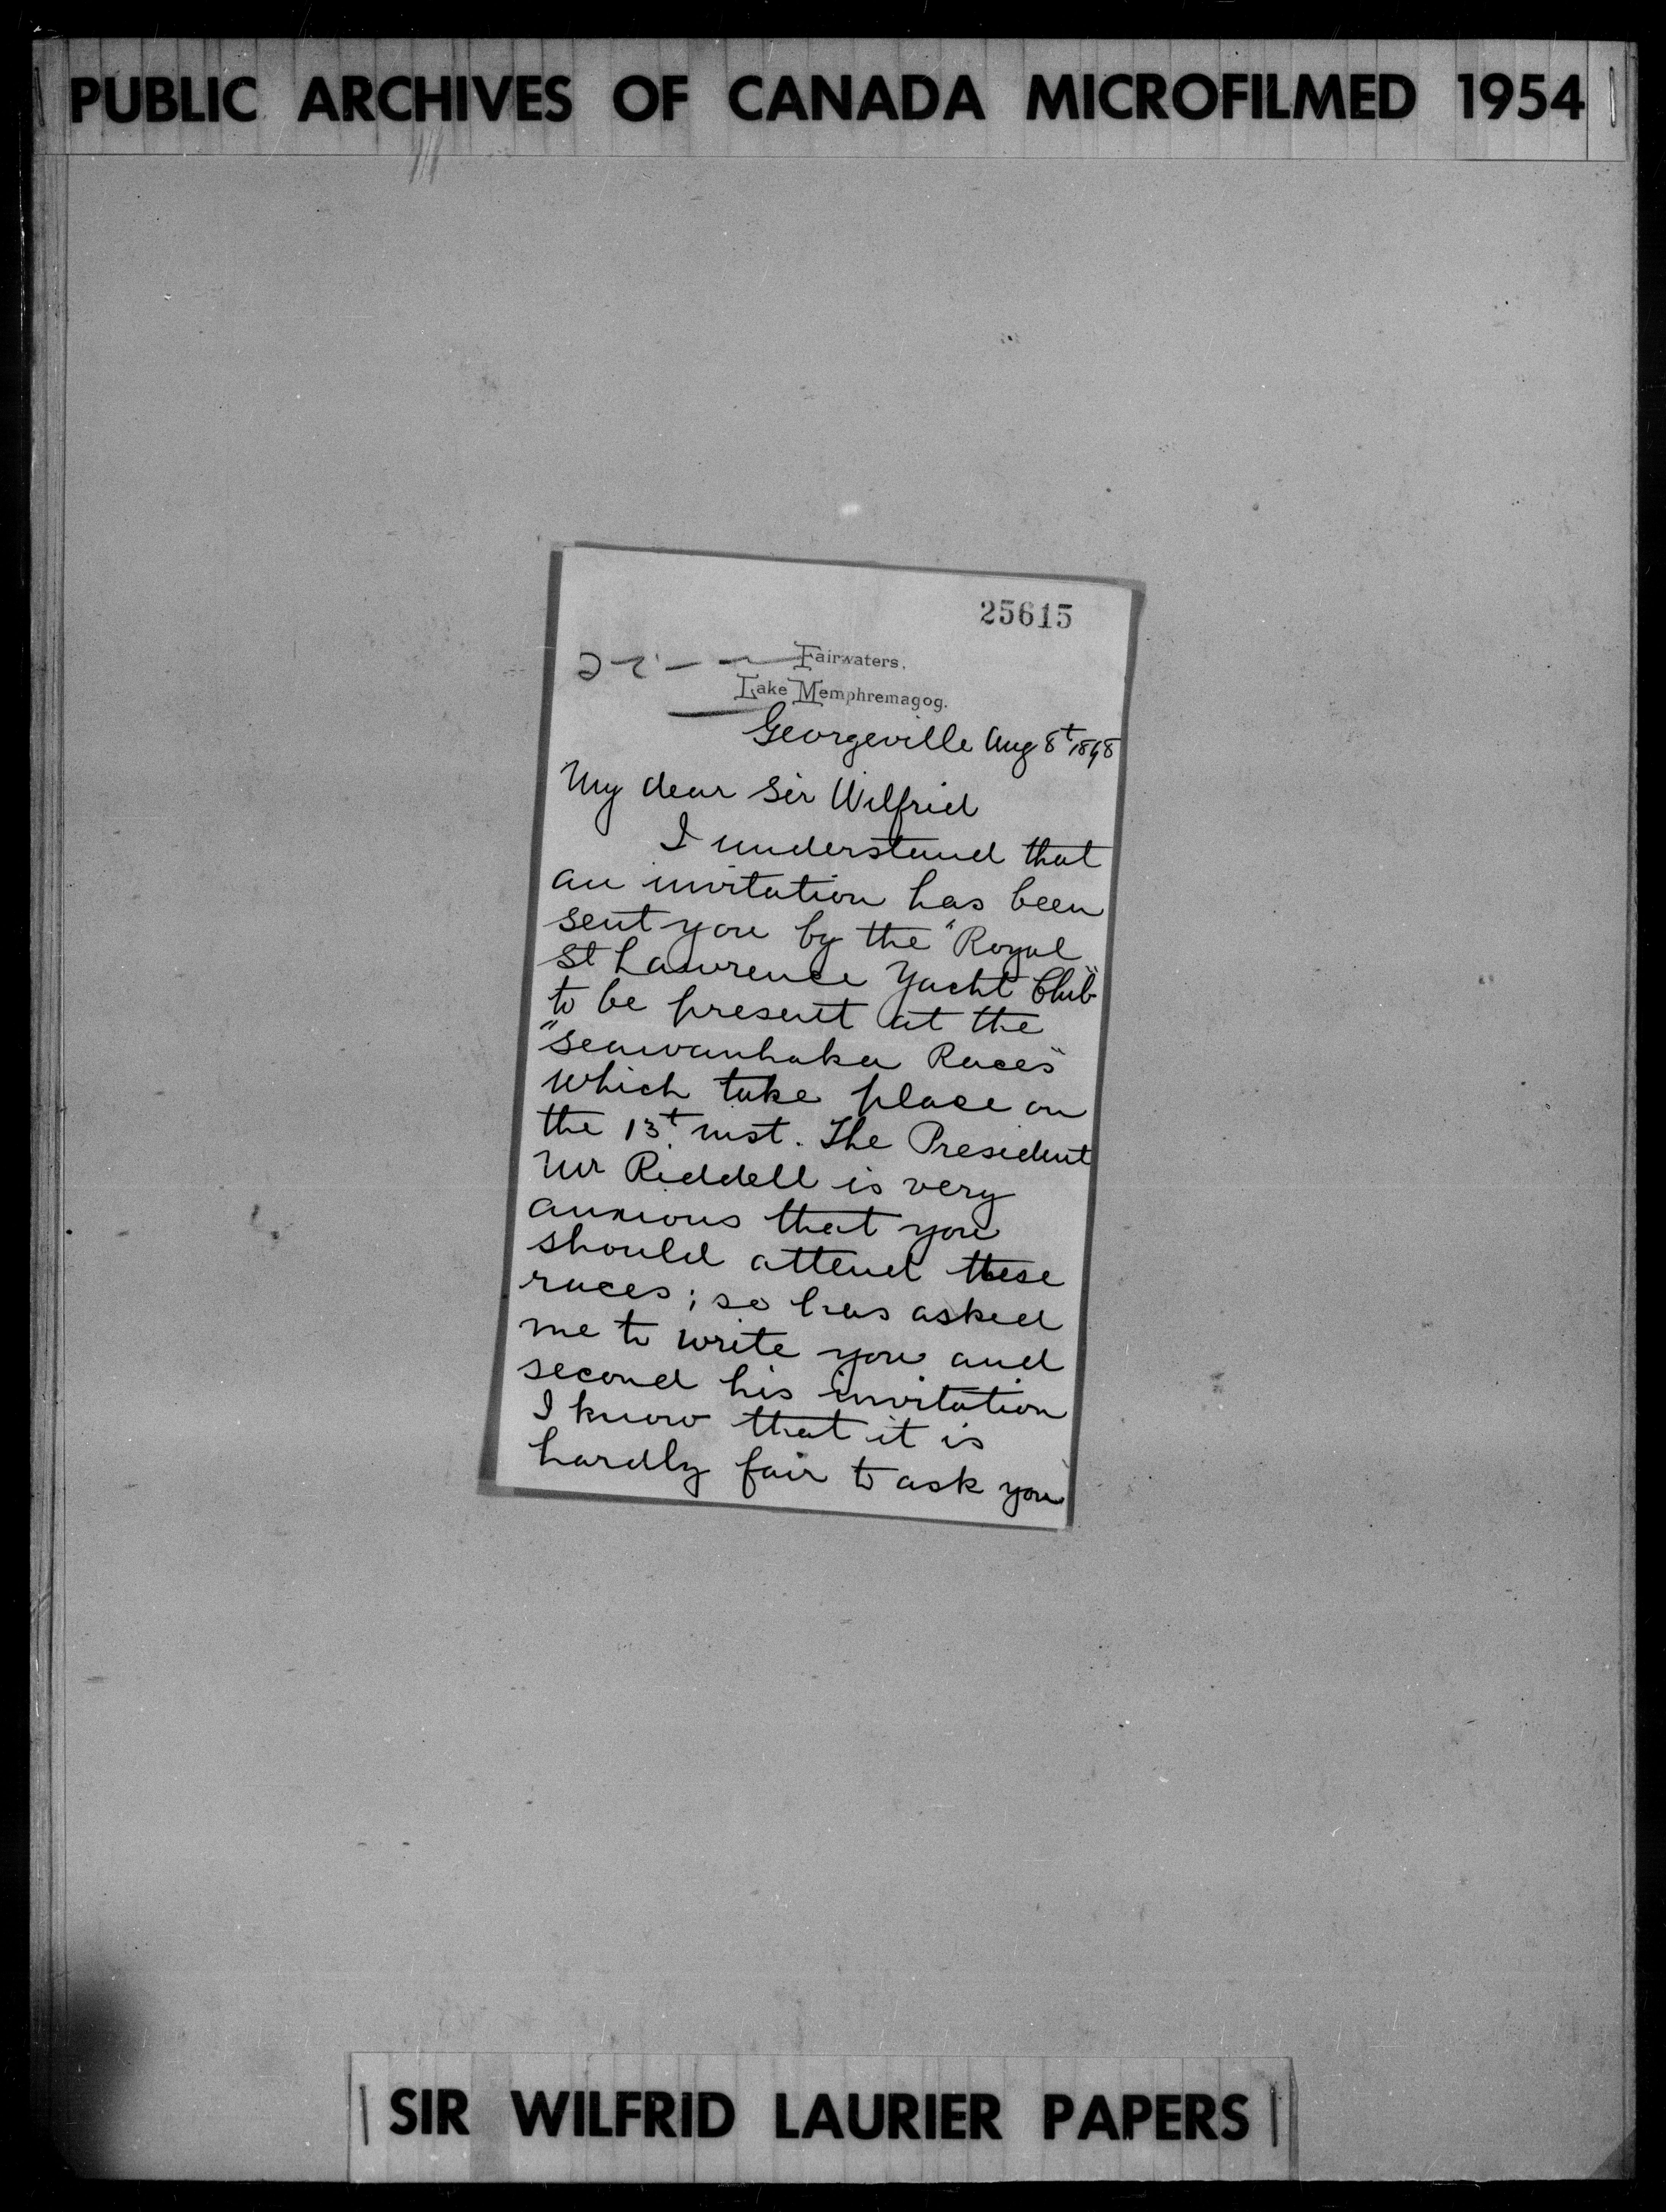 PUBLIC ARCHIVES OF CANADA MICROFILMED 1954
25615
Fairwaters,
Lake Memphremagog.
Georgeville Aug 8t 1898
My dear Sir Wilfrid
I understand that
an invitation has been
sent you by the "Royal
St Lawrence Yacht Club"
to be present at the
"Seawanhaka Races"
which take place on
the 13t inst. The President
Mr Riddell is very
anxious that you
should attend these
races; so has asked
me to write you and
second his invitation
I know that it is
hardly fair to ask you
SIR WILFRID LAURIER PAPERS